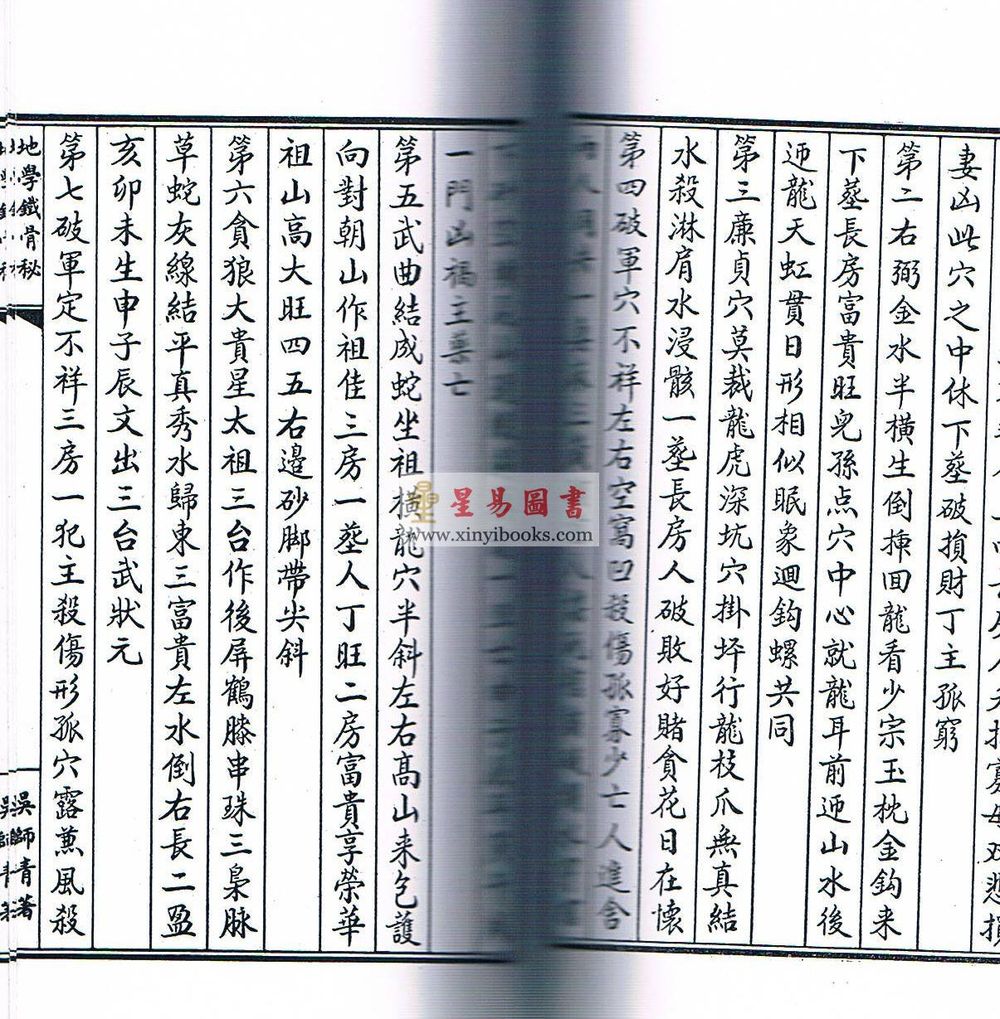 妻凶此穴之中休下塟破損財丁主孤窮
第二右弼金水半橫生倒揀回龍看少宗玉枕金鈎来
下塟長房富貴旺児孫点穴中心就龍耳前迎山水後
迎龍天虹貫日形相似眠象迴鈎螺共同
第三廉貞穴莫裁龍虎深坑穴掛坪行龍枝爪無真結
水殺淋肩水浸骸一塟長房人破敗好賭貪花日在懷
第四破軍穴不祥左右空窩凹殺傷孤寡少亡人進舍
一門凶禍主藥亡
第五武曲結成蛇坐祖橫龍穴半斜左右高山来包護
向對朝山作祖佳三房一塟人丁旺二房富貴享榮華
祖山高大旺四五右邉砂脚帶尖斜
第六貪狼大貴星太祖三台作後屏鶴膝串珠三臬脉
草蛇灰線結平真秀水歸東三富貴左水倒右長二盈
亥卯未生申子辰文出三台武狀元
第七破軍定不祥三房一犯主殺傷形孤穴露蕙風殺
地學鐵骨秘
吳師青著
星易圖書
www.xinyibooks.com